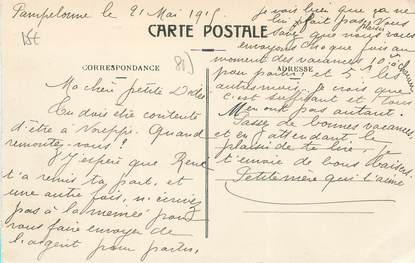 Pampelonne le 21 Mai 1915
81)
CARTE POSTALE
CORRESPONDANCE
ADRESSE
Ma chère petite
Tu dois être contente
d'être à Voreppe. Quand
remontez-vous ?
J'espère que René
t'a remis ta part, et
une autre fois, n'écrivez
pas à la mémée pour
vous faire envoyer de
l'argent pour partir.
je vois bien que ça ne
lui fait pas Vous
savez que nous vous
envoyons chaque fois au
moment des vacances 10 à chacun
pour partir ! et 5 les
autres mois. Je crois que
c'est suffisant et tous
n'en ont pas autant.
Passe de bonnes vacances
et en attendant le
plaisir de te lire je
t'envoie de bons baisers.
Petite mère qui t'aime